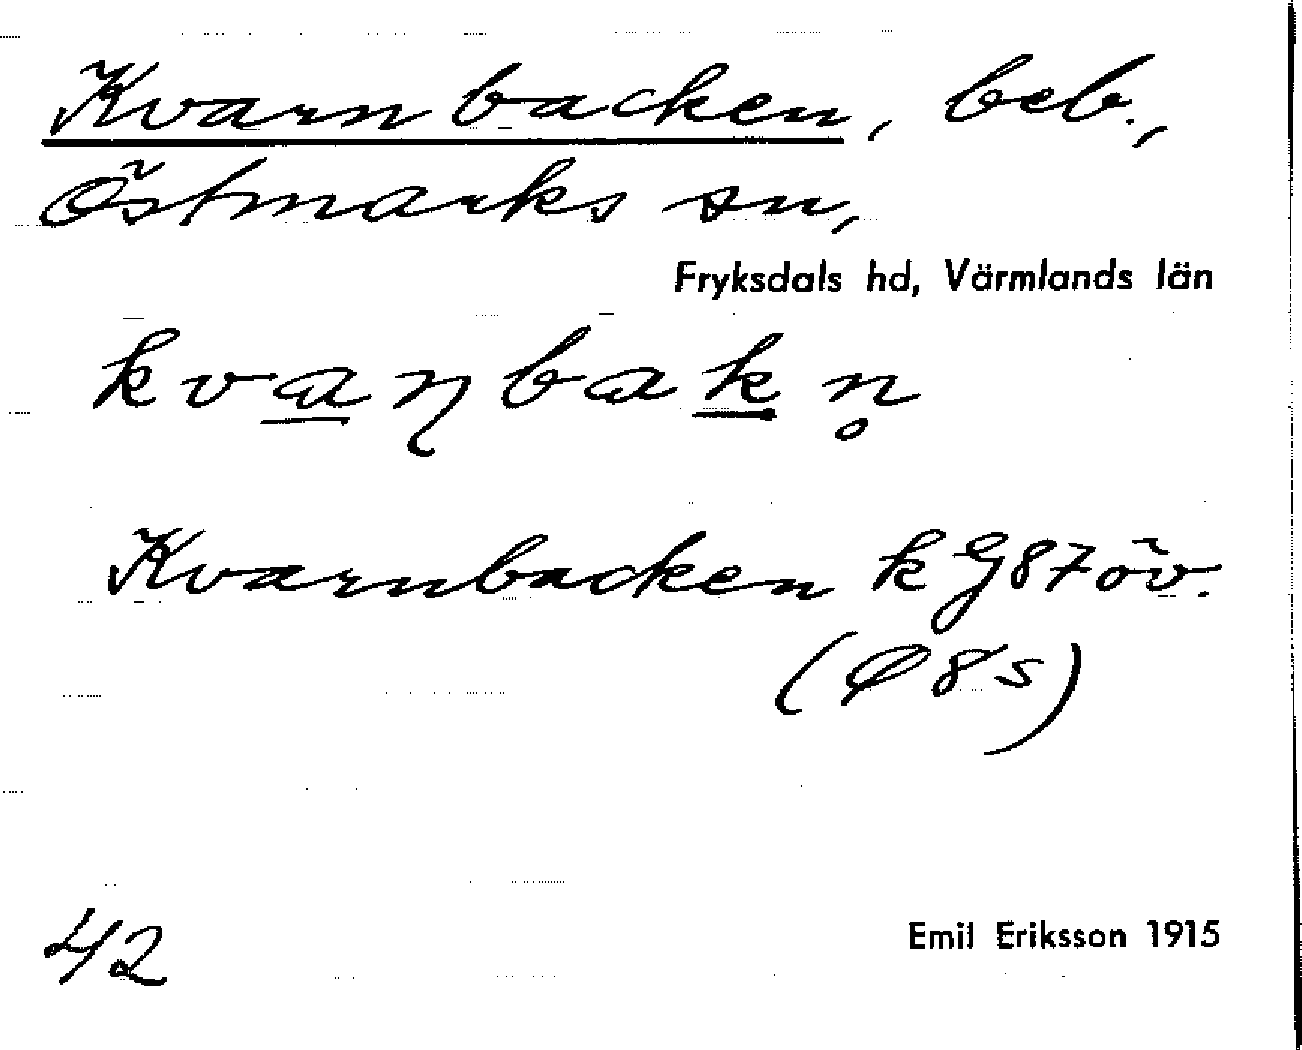 Kvarnbacken, beb.,
Östmarks sn,
Fryksdals hd, Värmlands län
kva̲ɳbak̲n̥
Kvarnbacken k G87öv.
(Ø8s)
42
Emil Eriksson 1915